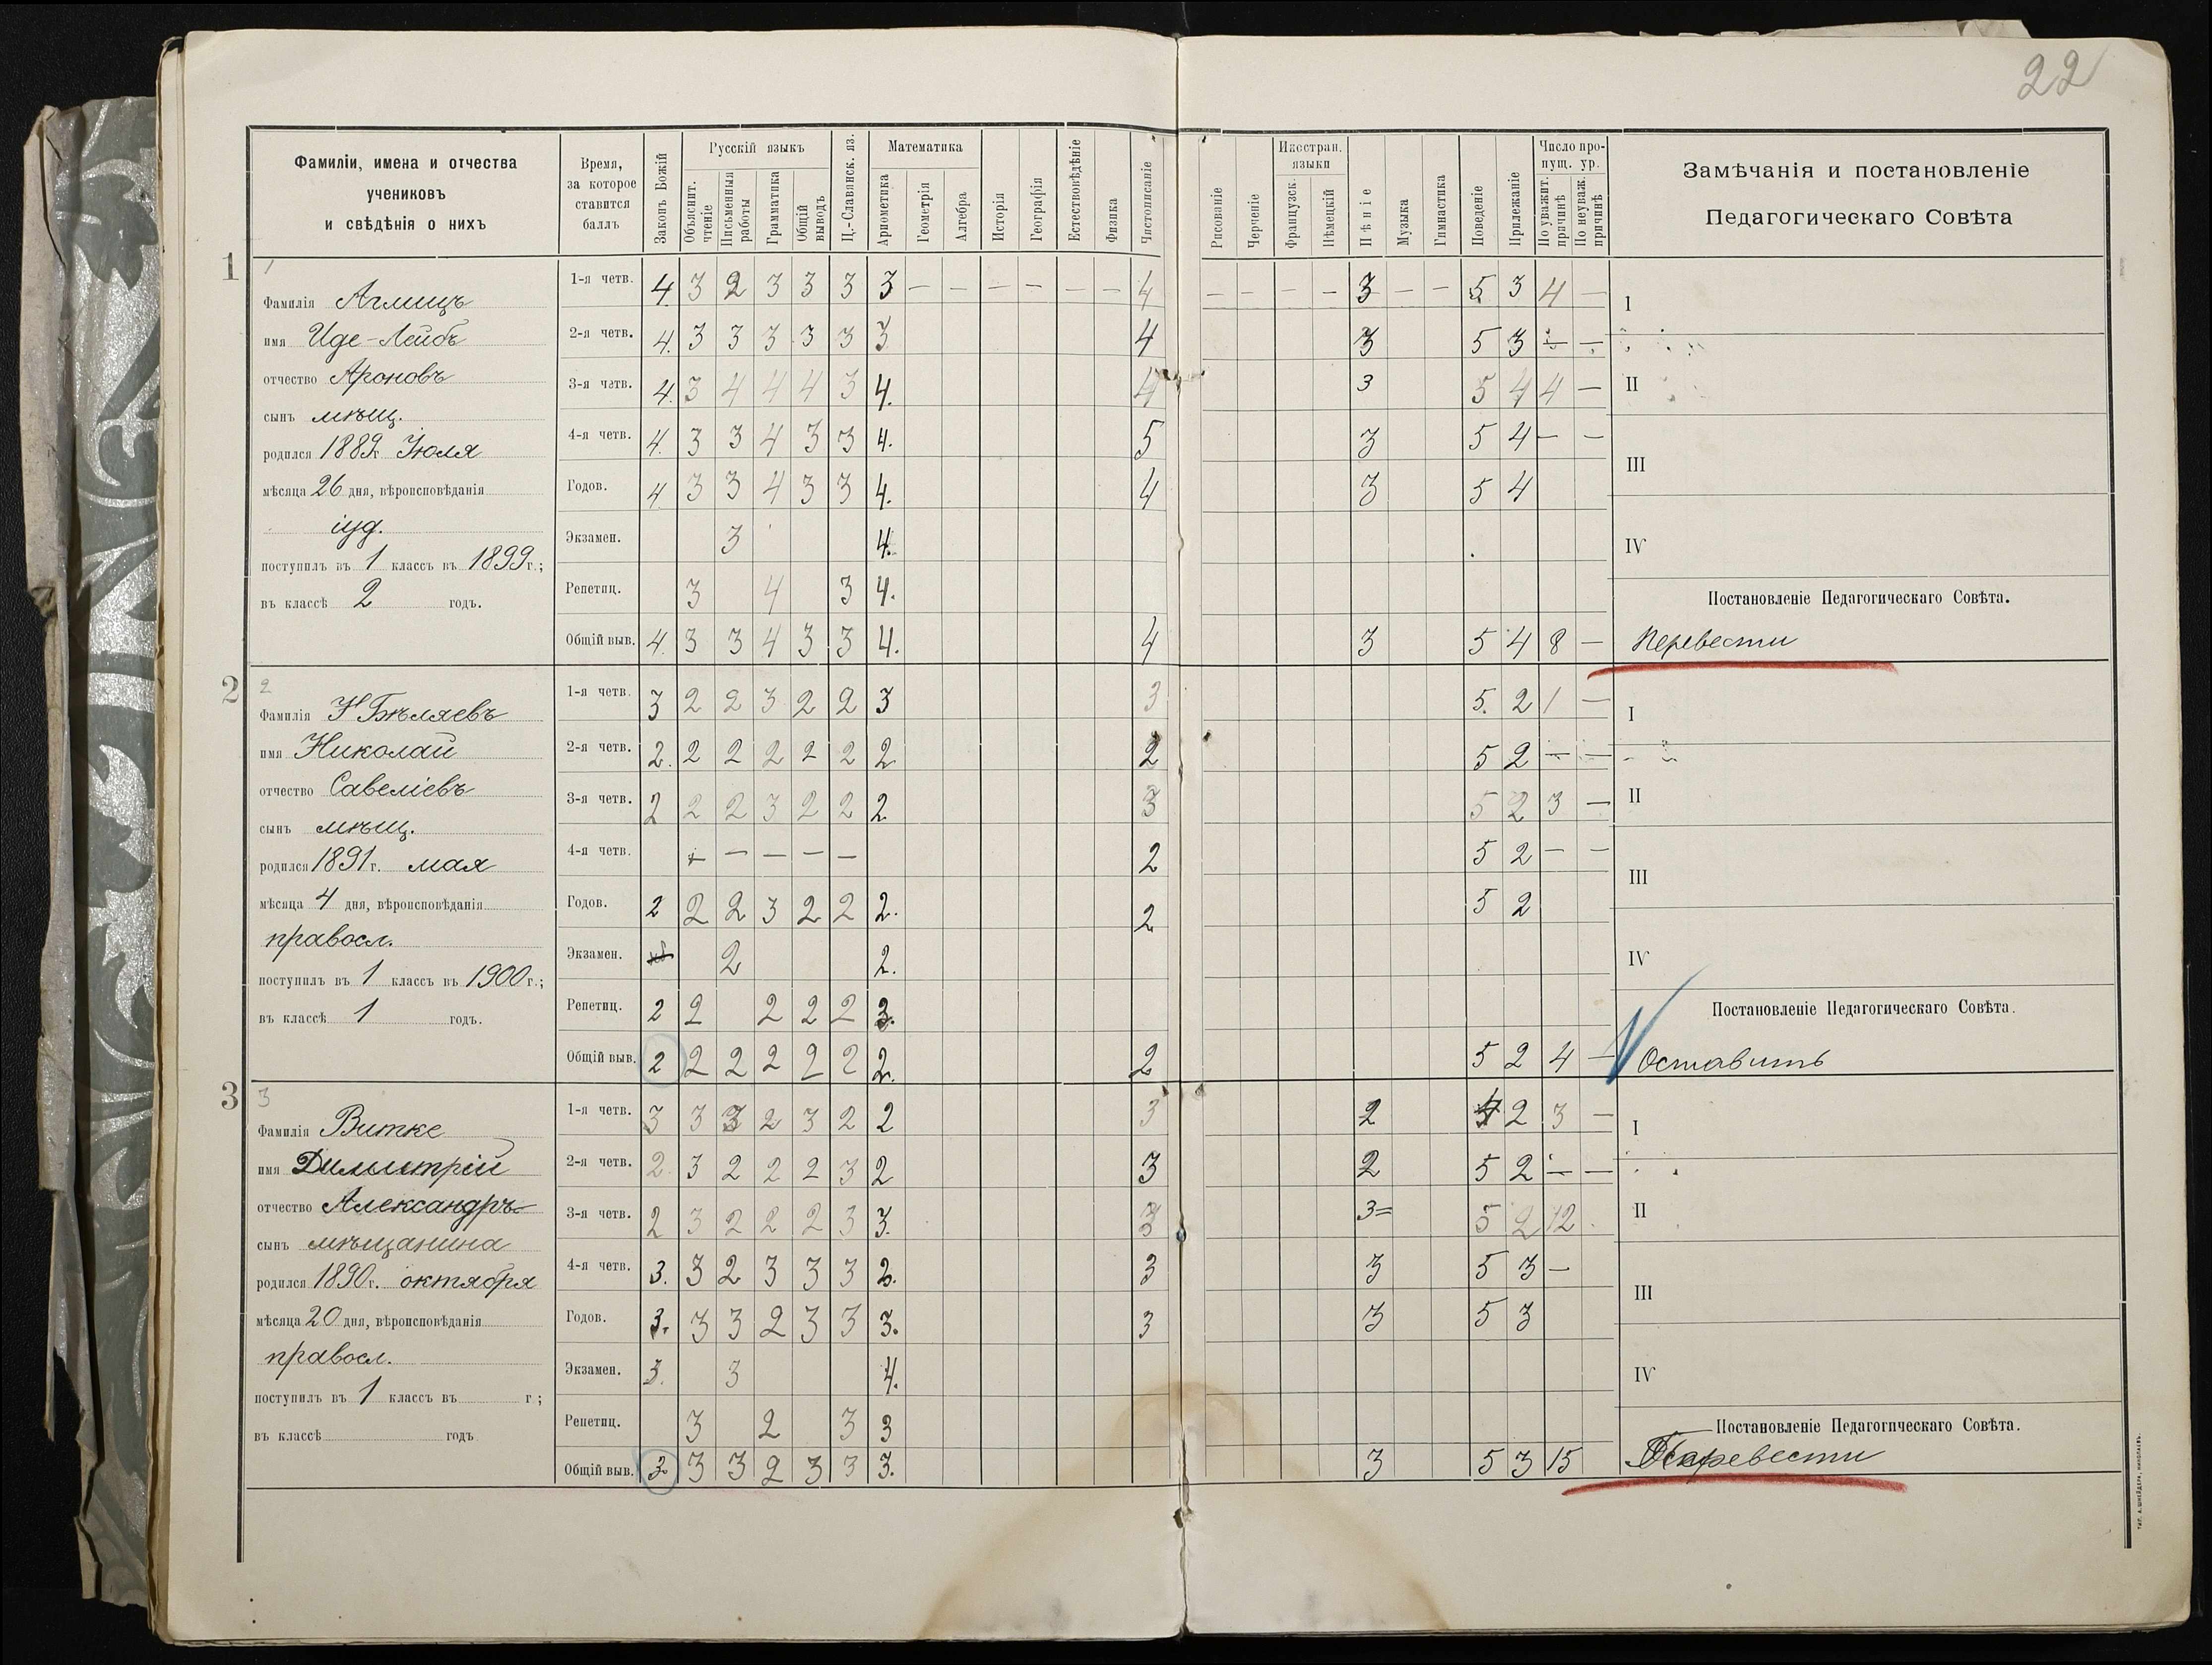 22
Фамиліи, имена и отчества
учениковъ
и свѣдѣнія о нихъ
Время,
за которое
ставится
баллъ
Законъ Божій
Русскій языкъ
Объяснит. чтеніе
Письменныя работы
Грамматика
Общій выводъ
Ц.-Славянск. яз.
Математика
Ариѳметика
Геометрія
Алгебра
Исторія
Географія
Естествовѣдѣніе
Физика
Чистописаніе
Рисованіе
Черченіе
Иностран. языки
Французск.
Нѣмецкій
Пѣніе
Музыка
Гимнастика
Поведеніе
Прилежаніе
Число пропущ. ур.
По уважит. причинѣ
По неуваж. причинѣ
Замѣчанія и постановленіе
Педагогическаго Совѣта
1
1
Фамилія Аглицъ
имя Иде-Лейбъ
отчество Ароновъ
сынъ мѣщ.
родился 1889г. Іюля
мѣсяца 26 дня, вѣроисповѣданія
іуд.
поступилъ въ 1 классъ въ 1899г.;
въ классѣ 2 годъ.
1-я четв. 4 3 2 3 3 3 3 — — — — — — 4 — — — — 3 — — 5 3 4 —
2-я четв. 4. 3 3 3 3 3 3 4 3 5 3 — —
3-я четв. 4. 3 4 4 4 3 4. 4 3 5 4 4 —
4-я четв. 4. 3 3 4 3 3 4. 5 3 5 4 — —
Годов. 4. 3 3 4 3 3 4. 4 3 5 4
Экзамен. 3 4.
Репетиц. 3 4 3 4.
Общій выв. 4. 3 3 4 3 3 4. 4 3 5 4 8 —
I
II
III
IV
Постановленіе Педагогическаго Совѣта.
Перевести
2
2
Фамилія Бѣляевъ
имя Николай
отчество Савеліевъ
сынъ мѣщ.
родился 1891г. мая
мѣсяца 4 дня, вѣроисповѣданія
правосл.
поступилъ въ 1 классъ въ 1900г.;
въ классѣ 1 годъ.
1-я четв. 3 2 2 3 2 2 3 3 5. 2 1 —
2-я четв. 2. 2 2 2 2 2 2 2 5 2 — —
3-я четв. 2 2 2 3 2 2 2 3 5 2 3 —
4-я четв. — — — — 2 5 2 — —
Годов. 2 2 2 3 2 2 2. 2 5 2
Экзамен. 2 2.
Репетиц. 2 2 2 2 2
Общій выв. 2 2 2 2 2 2 2. 2 5 2 4 —
I
II
III
IV
Постановленіе Педагогическаго Совѣта.
Оставить
3
3
Фамилія Витке
имя Димитрій
отчество Александръ
сынъ мѣщанина
родился 1890г. октября
мѣсяца 20 дня, вѣроисповѣданія
правосл.
поступилъ въ 1 классъ въ г.;
въ классѣ годъ
1-я четв. 3 3 3 2 3 2 2 3 2 2 3 —
2-я четв. 2. 3 2 2 2 3 2 3 2 5 2 — —
3-я четв. 2 3 2 2 2 3 3. 3 3= 5 2 12
4-я четв. 3. 3 2 3 3 3 3 3 5 3 —
Годов. 3. 3 3 2 3 3 3. 3 3 5 3
Экзамен. 3. 3 4.
Репетиц. 3 2 3 3
Общій выв. 3 3 3 2 3 3 3. 3 5 3 15
I
II
III
IV
Постановленіе Педагогическаго Совѣта.
Перевести
ТИП. А. ШНЕЙДЕРА, НИКОЛАЕВЪ.